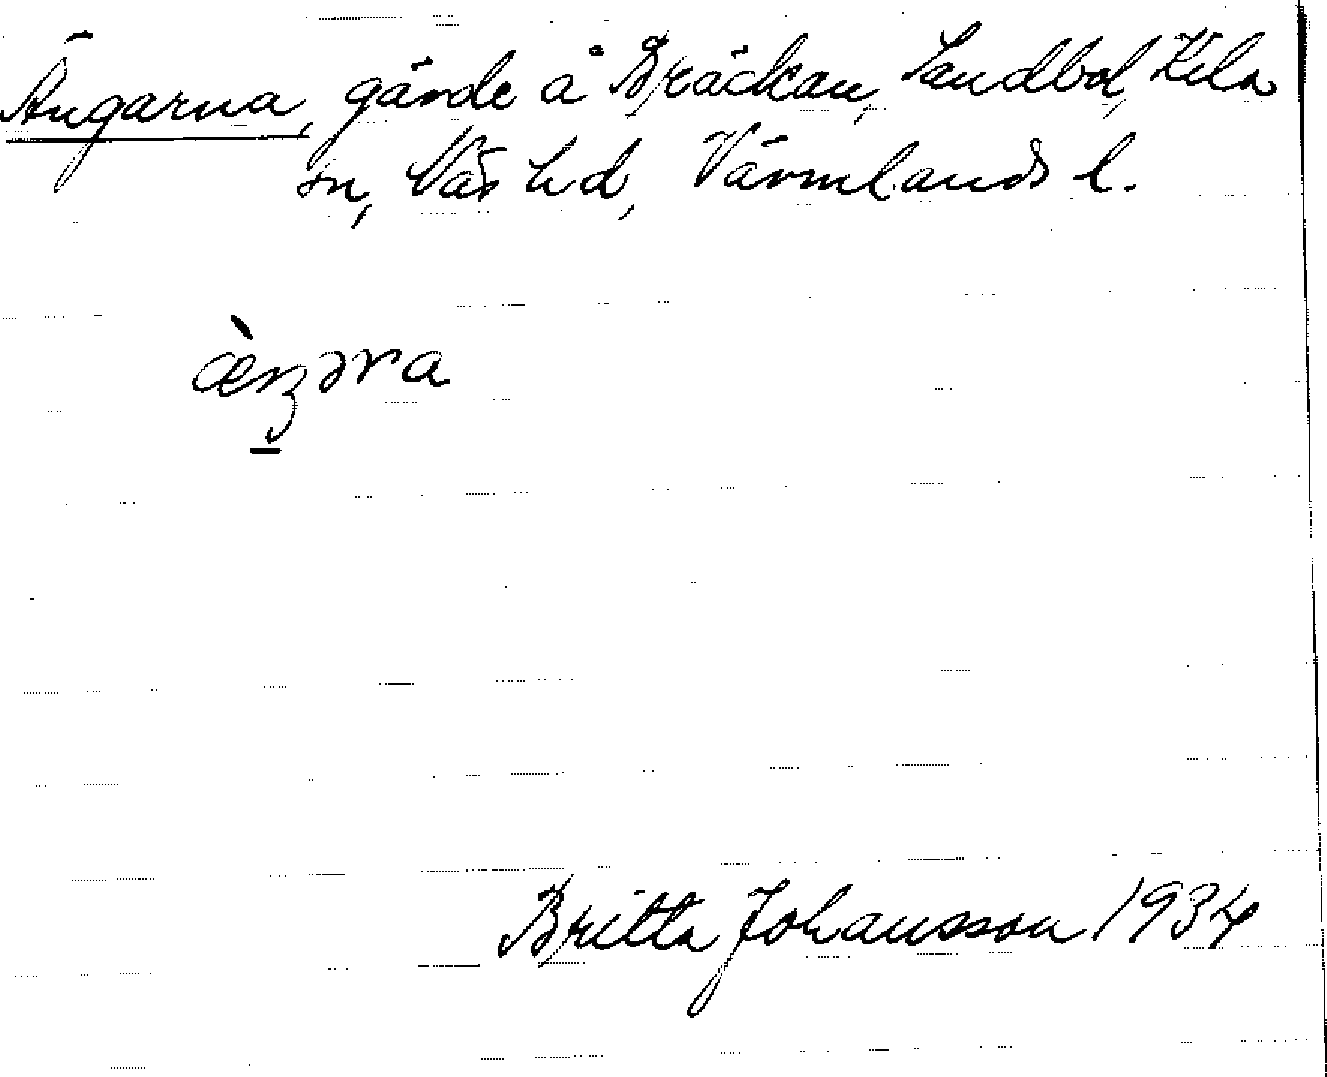 Ängarna, gärde å Bräckan, Sandbol, Kila
sn, Näs hd, Värmlands l.
æ̀ŋəra
Britta Johansson 1934